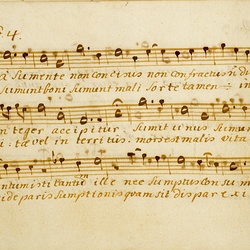 4.
a Sumente non concisus non confractus n di
Sumunt boni sumunt mali Sorte tamen ÷ in
nteger accipitur Sumit unus Sumu
vel in territus. mors est malis vita
ntum isti tantum ille nec Sumptus con su m
ide paris Sumptionis quam sit dispar exi